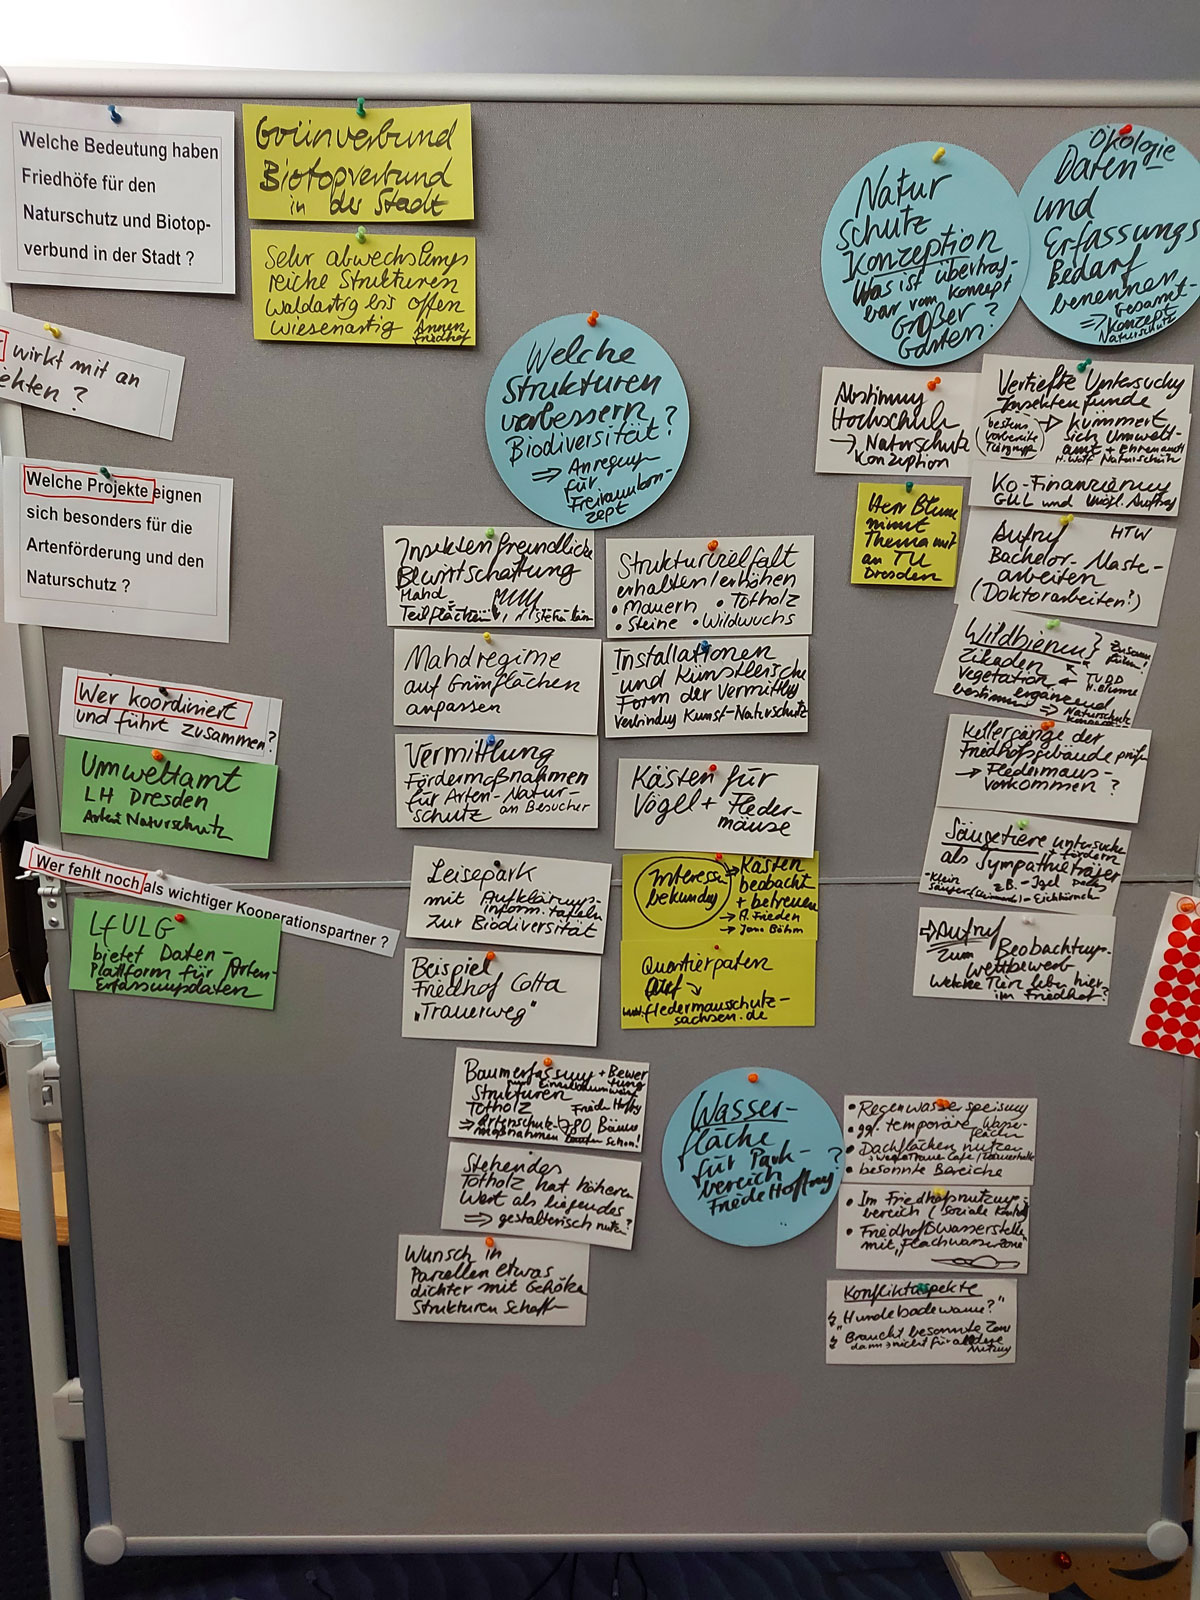 Welche Bedeutung haben
Friedhöfe für den
Naturschutz und Biotop-
verbund in der Stadt ?
Grünverbund
Biotopverbund
in der Stadt
Sehr abwechslungs
reiche Strukturen
Waldartig bis offen
wiesenartig Annen
friedhof
wirkt mit an
ekten ?
Welche Projekte eignen
sich besonders für die
Artenförderung und den
Naturschutz ?
Wer koordiniert
und führt zusammen?
Umweltamt
LH Dresden
Naturschutz
Wer fehlt noch als wichtiger Kooperationspartner ?
LfULG
bietet Daten-
Plattform für Arten-
Erfassungsdaten
Welche
Strukturen
verbessern
Biodiversität ?
⇒ Anregung
für
Freiraumkon-
zept
Insektenfreundliche
Bewirtschaftung
Mahd
Teilflächen
Mahdregime
auf Grünflächen
anpassen
Vermittlung
Fördermaßnahmen
für Arten-Natur-
schutz an Besucher
Leisepark
mit Aufklärungs-
inform. tafeln
zur Biodiversität
Beispiel
Friedhof Cotta
"Trauerweg"
Baumerfassung + Bewertung
Strukturen
Totholz
⇒ Artenschutz-
maßnahmen
80 Bäume
laufen schon!
Stehendes
Totholz hat höheren
Wert als liegendes
⇒ gestalterisch nutzen?
Wunsch in
Parzellen etwas
dichter mit Gehölz
Strukturen schaffen
Strukturvielfalt
erhalten/erhöhen
• Mauern • Totholz
• Steine • Wildwuchs
Installationen
und Künstlerische
Form der Vermittlg
Verbindung Kunst-Naturschutz
Kästen für
Vögel + Fleder-
mäuse
Interesse
bekundung
→ Kästen
beobacht
+ betreuen
→ A. Frieden
→ Jana Böhm
Quartierpaten
www.fledermausschutz-
sachsen.de
Wasser-
fläche
für Park-
bereich ?
Friede Hoffnung
• Regenwasserspeisung
• ggf. temporäre Wasser-
flächen
• Dachflächen nutzen
• besonnte Bereiche
• Im Friedhofsnutzungs-
bereich (soziale Kontrolle
• Friedhofswasserstellen
mit "Flachwasserzone
Konfliktaspekte
"Hundebadewanne?"
Braucht besonnte Zone
dann nicht für andere
Nutzung
Natur
schutz
Konzeption
Was ist übertrag-
bar vom Konzept
Großer
Garten ?
Ökologie
Daten-
und
Erfassungs
Bedarf
benennen
⇒ Gesamt-
Konzept
Naturschutz
Abstimmg
Hochschule
→ Naturschutz
Konzeption
Herr Blume
nimmt
Thema mit
an TU
Dresden
Vertiefte Untersuchg
Insektenfunde
bestens
vorbereitete
Tiergruppe
→ kümmert
sich Umwelt-
amt + Ehrenamt
H. Wolf Naturschutz
Ko-Finanzierung
Aufruf HTW
Bachelor- Master-
arbeiten
(Doktorarbeiten?)
Wildbienen
Zikaden
Vegetation
TUDD
H. Blume
ergänzend
⇒ Naturschutz
Konzeption
Kellergänge der
Friedhofsgebäude prüfen
→ Fledermaus-
vorkommen ?
Säugetiere untersuchen
+ fördern
als Sympathieträger
z.B. - Igel
- Eichhörnchen
⇒ Aufruf
zum Beobachtungs-
wettbewerb
Welche Tiere leben hier
im Friedhof?